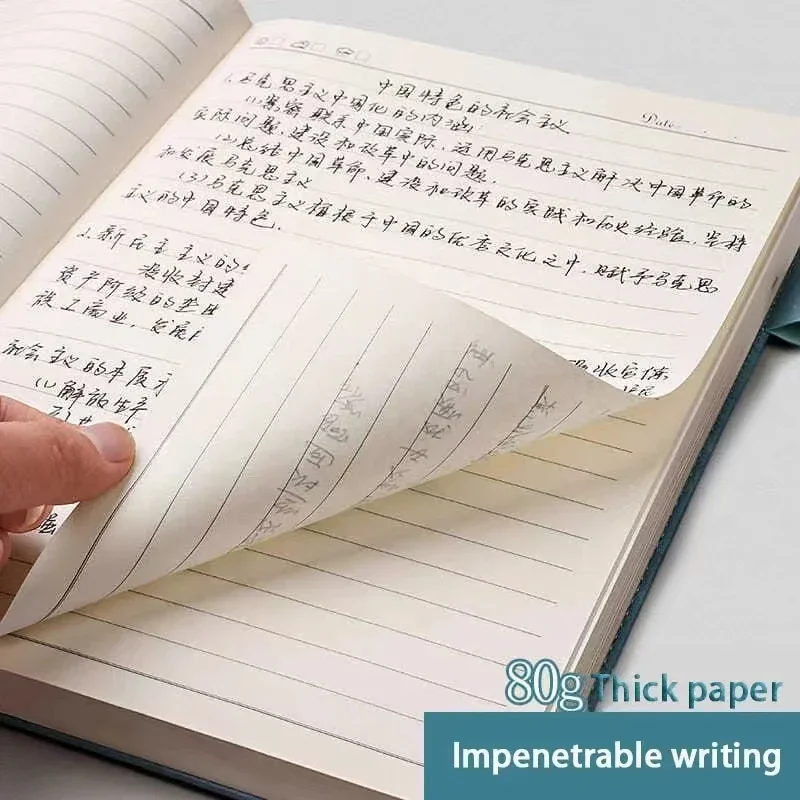 Date:
中国特色的社会主义
1.马克思主义中国化的内涵:
(1)紧密联系中国实际,运用马克思主义解决中国革命的
实际问题,建设和改革中的问题.
(2)总结中国革命、建设和改革的实践和历史经验,坚持
和发展马克思主义
(3)马克思主义植根于中国的优秀文化之中,赋予马克思
主义的中国特色.
2.新民主主义的
没收封建
资产阶级的
族工商业,发展
社会主义的本质
(1)解放生产
80g Thick paper
Impenetrable writing